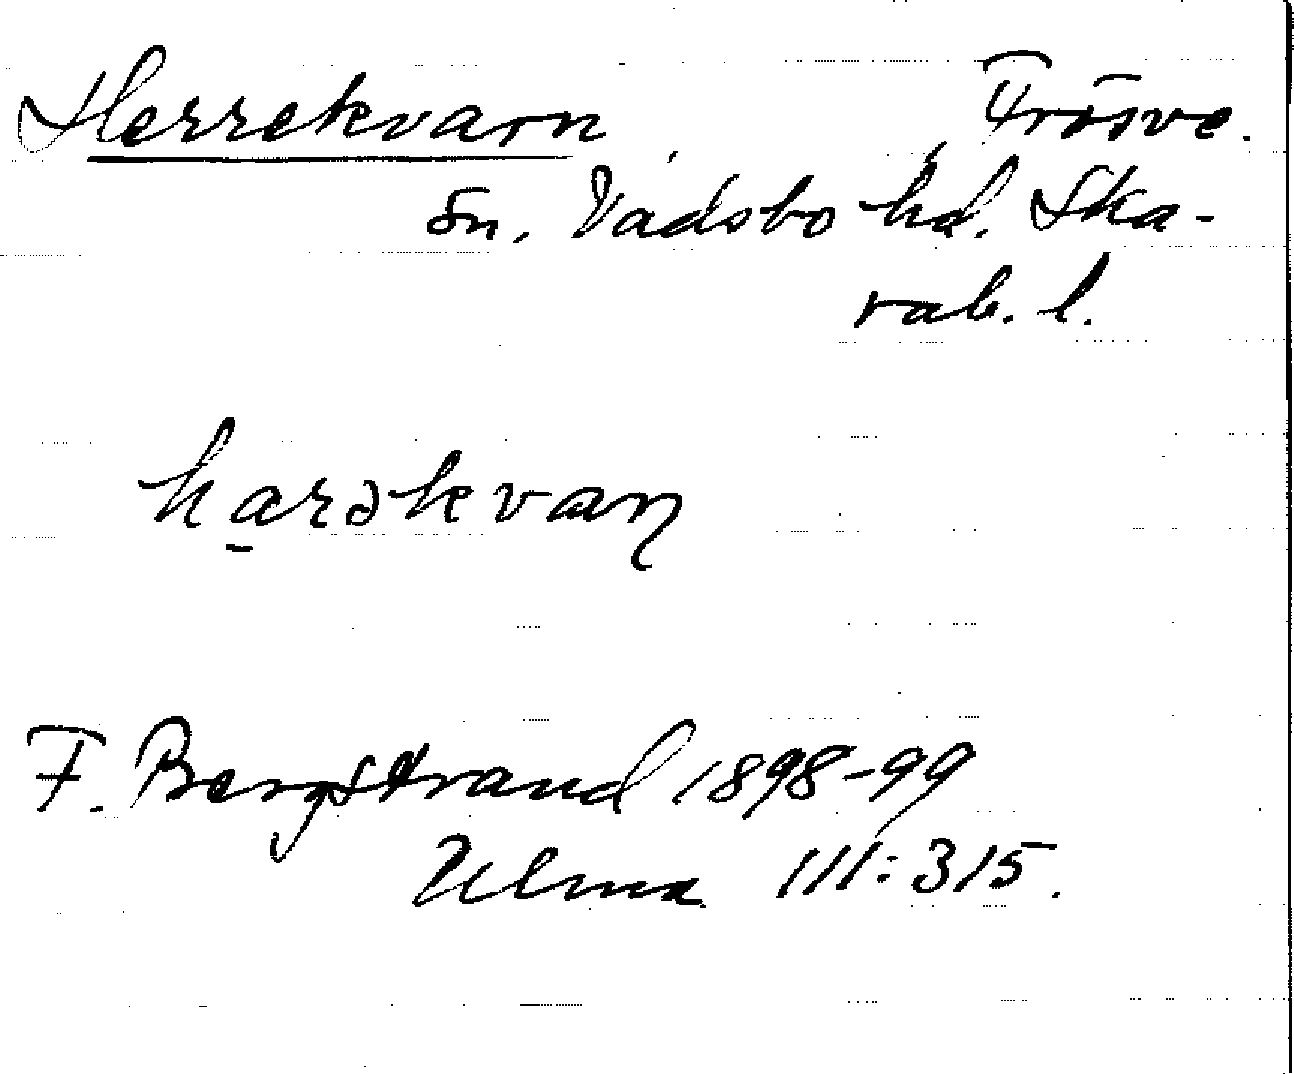 Herrekvarn, Frösve.
sn. Vadsbo hd. Ska-
rab. l.
ha̱rəkvaɳ
F. Bergstrand 1898-99
Ulma 111:315.